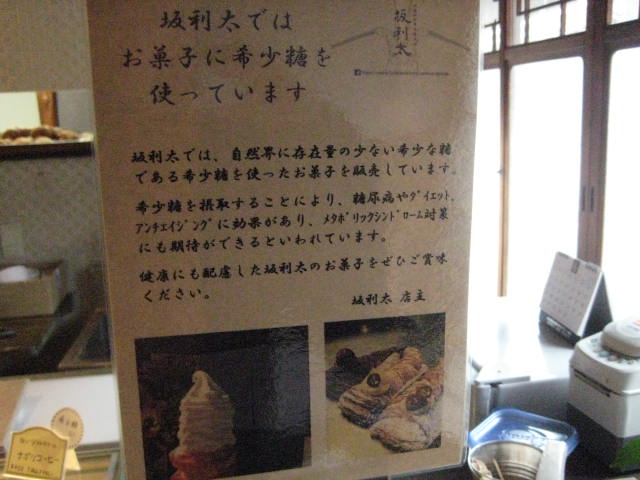 坂利太では
お菓子に希少糖を
使っています
坂利太
坂利太では、自然界に存在量の少ない希少な糖
である希少糖を使ったお菓子を販売しています。
希少糖を摂取することにより、糖尿病やﾀﾞｲｴｯﾄ、
ｱﾝﾁｴｲｼﾞﾝｸﾞに効果があり、ﾒﾀﾎﾞﾘｯｸｼﾝﾄﾞﾛｰﾑ対策
にも期待ができるといわれています。
健康にも配慮した坂利太のお菓子をぜひご賞味
ください。
坂利太 店主